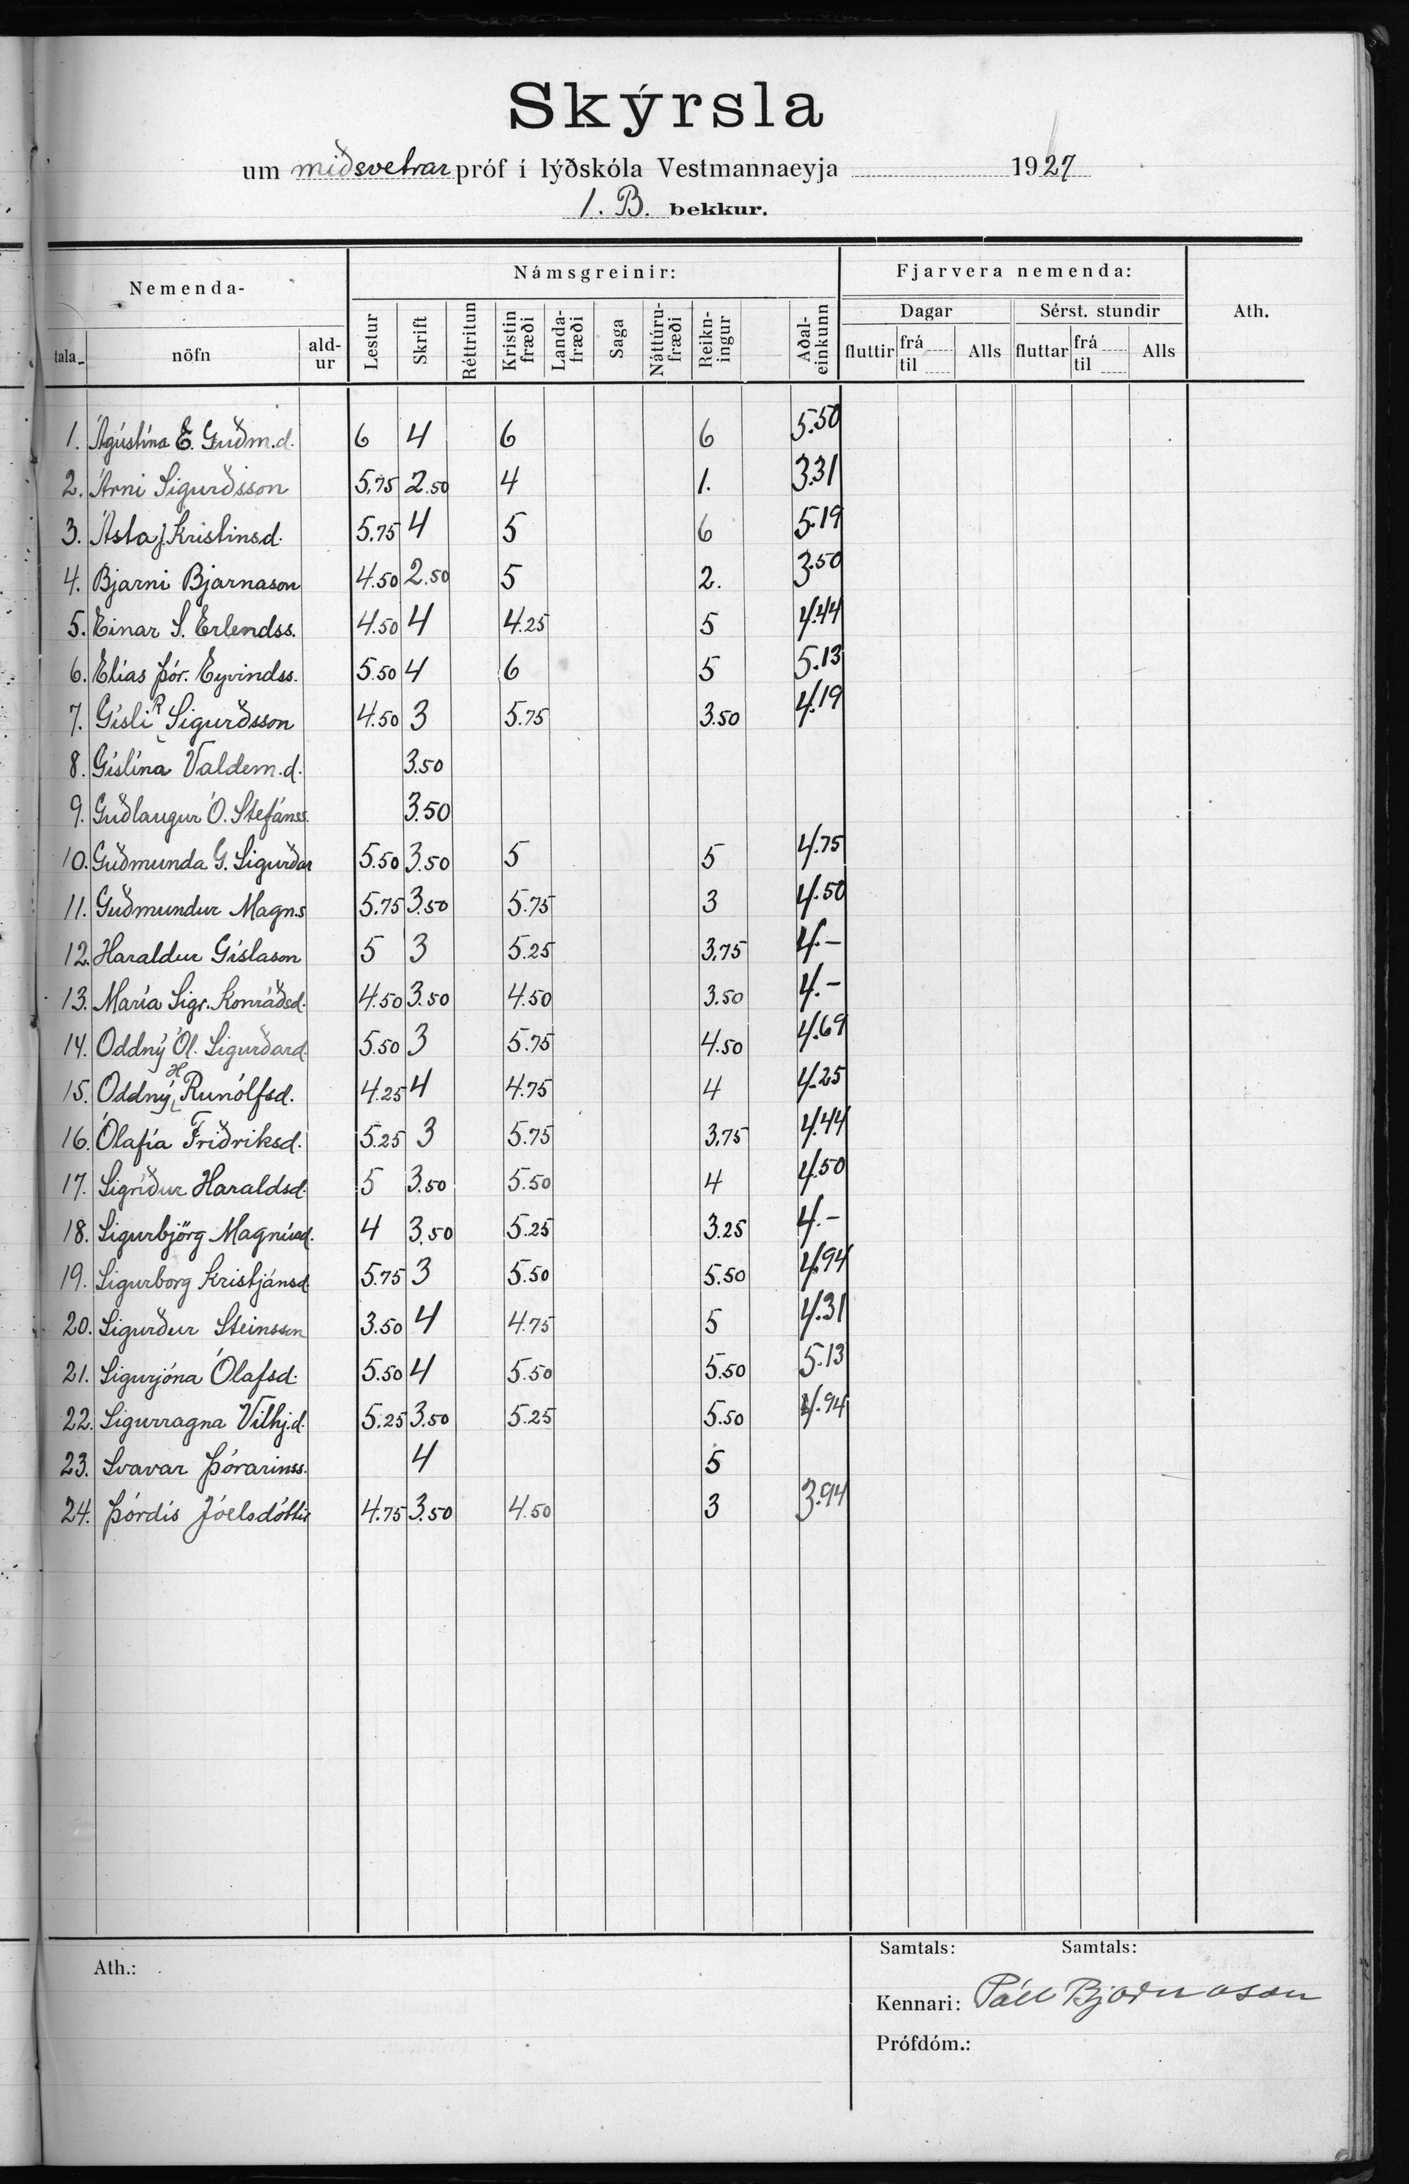 Skýrsla
um miðsvetrar próf í lýðskóla Vestmannaeyja 1927
1. B. bekkur.
Nemenda- Námsgreinir: Fjarvera nemenda: Ath.
Dagar Sérst. stundir
tala nöfn ald-ur Lestur Skrift Réttritun Kristin fræði Landa-fræði Saga Náttúru-fræði Reikn-ingur Aðal-einkunn fluttir frá til Alls fluttar frá til Alls
1. Ágústína E. Guðm.d. 6 4 6 6 5.50
2. Árni Sigurðsson 5,75 2.50 4 1. 3.31
3. Ásta J. Kristinsd. 5.75 4 5 6 5.19
4. Bjarni Bjarnason 4.50 2.50 5 2. 3.50
5. Einar S. Erlendss. 4.50 4 4.25 5 4.44
6. Elías Þór. Eyvindss. 5.50 4 6 5 5.13
7. Gísli R Sigurðsson 4.50 3 5.75 3.50 4.19
8. Gíslína Valdem.d. 3.50
9. Guðlaugur Ó. Stefánss. 3.50
10. Guðmunda G. Sigurðar 5.50 3.50 5 5 4.75
11. Guðmundur Magn.s 5.75 3.50 5.75 3 4.50
12. Haraldur Gíslason 5 3 5.25 3,75 4.-
13. María Sigr. Konráðsd. 4.50 3.50 4.50 3.50 4.-
14. Oddný Ól. Sigurðard. 5.50 3 5.75 4.50 4.69
15. Oddný H Runólfsd. 4.25 4 4.75 4 4.25
16. Ólafía Friðriksd. 5.25 3 5.75 3,75 4.44
17. Sigríður Haraldsd. 5 3.50 5.50 4 4.50
18. Sigurbjörg Magnúsd. 4 3.50 5.25 3.25 4.-
19. Sigurborg Kristjánsd. 5.75 3 5.50 5.50 4.94
20. Sigurður Steinsson 3.50 4 4.75 5 4.31
21. Sigurjóna Ólafsd. 5.50 4 5.50 5.50 5.13
22. Sigurragna Vilhj.d. 5.25 3.50 5.25 5.50 4.94
23. Svavar Þórarinss. 4 5
24. Þórdís Jóelsdóttir 4.75 3.50 4.50 3 3.94
Samtals: Samtals:
Ath.:
Kennari: Páll Bjarnason
Prófdóm.: